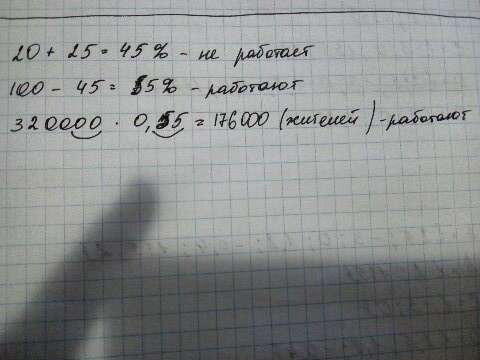 20 + 25 = 45% - не работает
100 - 45 = 55% - работают
320000 · 0,55 = 176000 (жителей) - работают